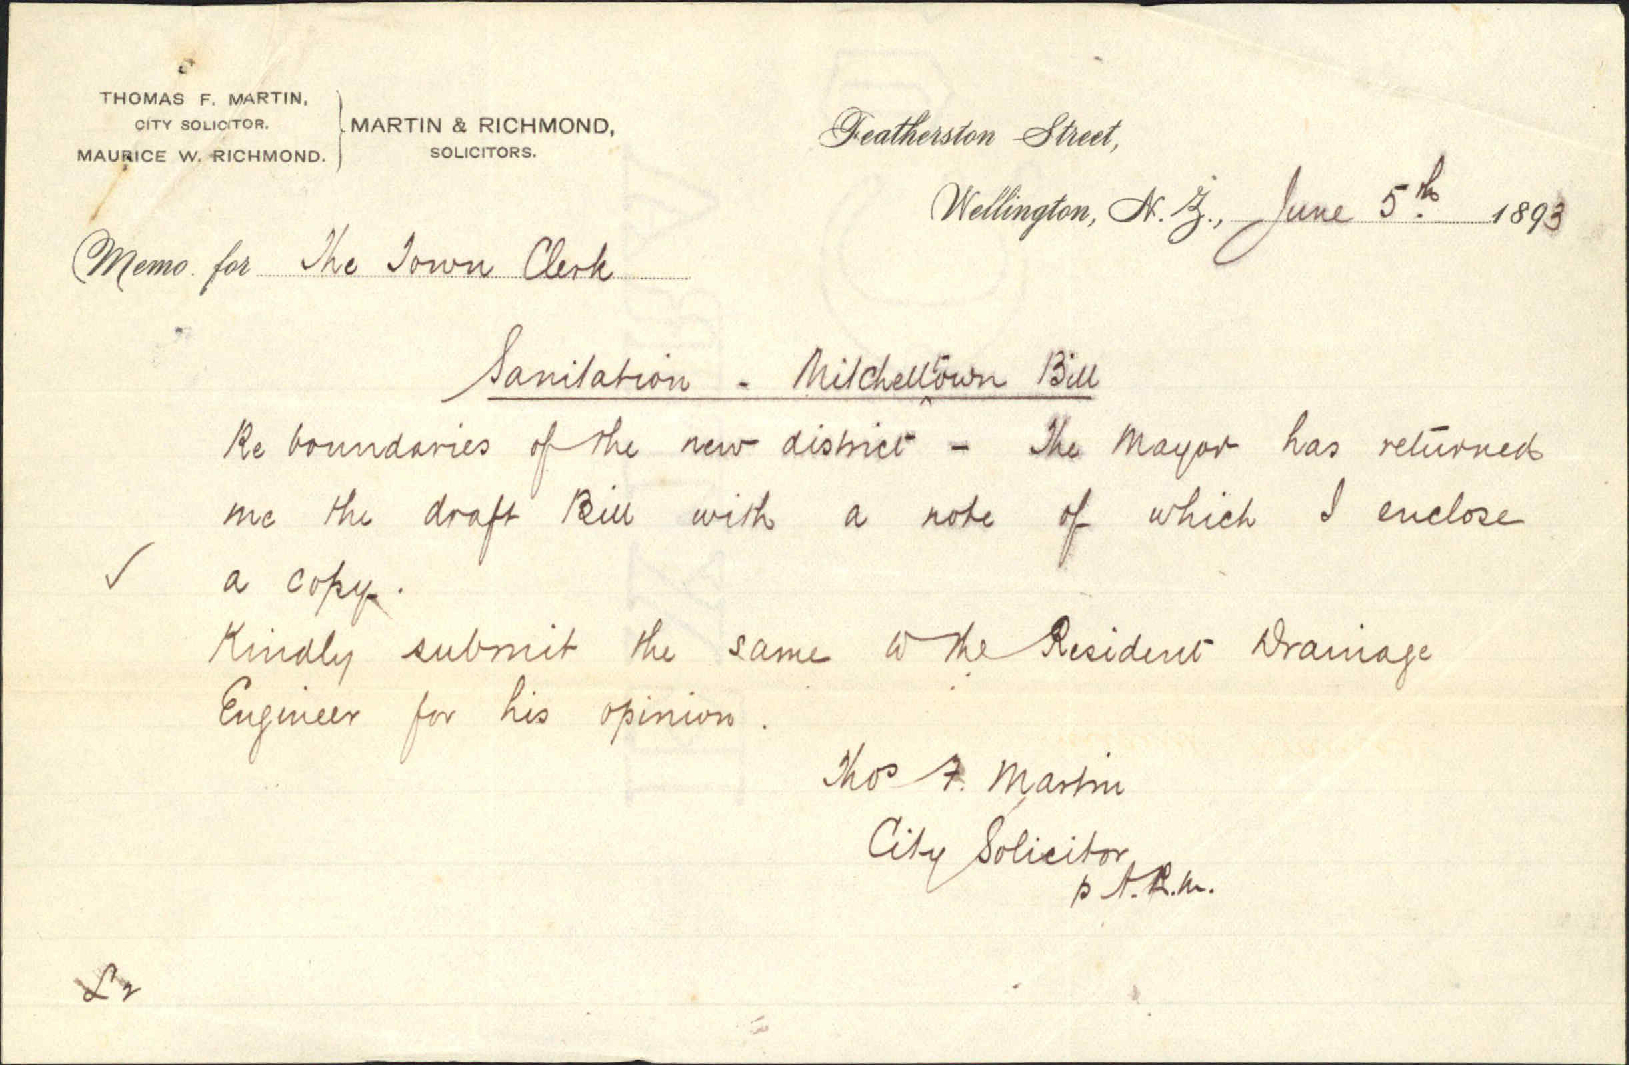 THOMAS F. MARTIN,
CITY SOLICITOR.
MAURICE W. RICHMOND.
MARTIN & RICHMOND,
SOLICITORS.
Featherston Street,
Wellington, N.Z., June 5th 1893
Memo. for The Town Clerk
Sanitation - Mitchelltown Bill
Re boundaries of the new district - The Mayor has returned
me the draft Bill with a note of which I enclose
✓ a copy.
Kindly submit the same to the Resident Drainage
Engineer for his opinion.
Thos F. Martin
City Solicitor
p A.R.M.